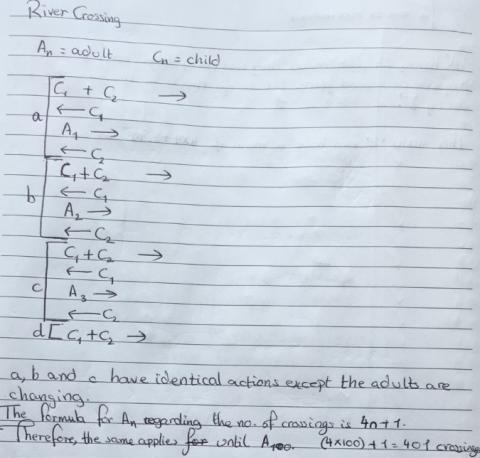 River Crossing
An = adult Cn = child
C1 + C2 →
a ← C1
A1 →
← C2
C1 + C2 →
b ← C1
A2 →
← C2
C1 + C2 →
← C1
c A3 →
← C2
d [ C1 + C2 →
a, b and c have identical actions except the adults are
changing.
The formula for An regarding the no. of crossings is 4n+1.
Therefore, the same applies for until A100. (4×100)+1 = 401 crossings